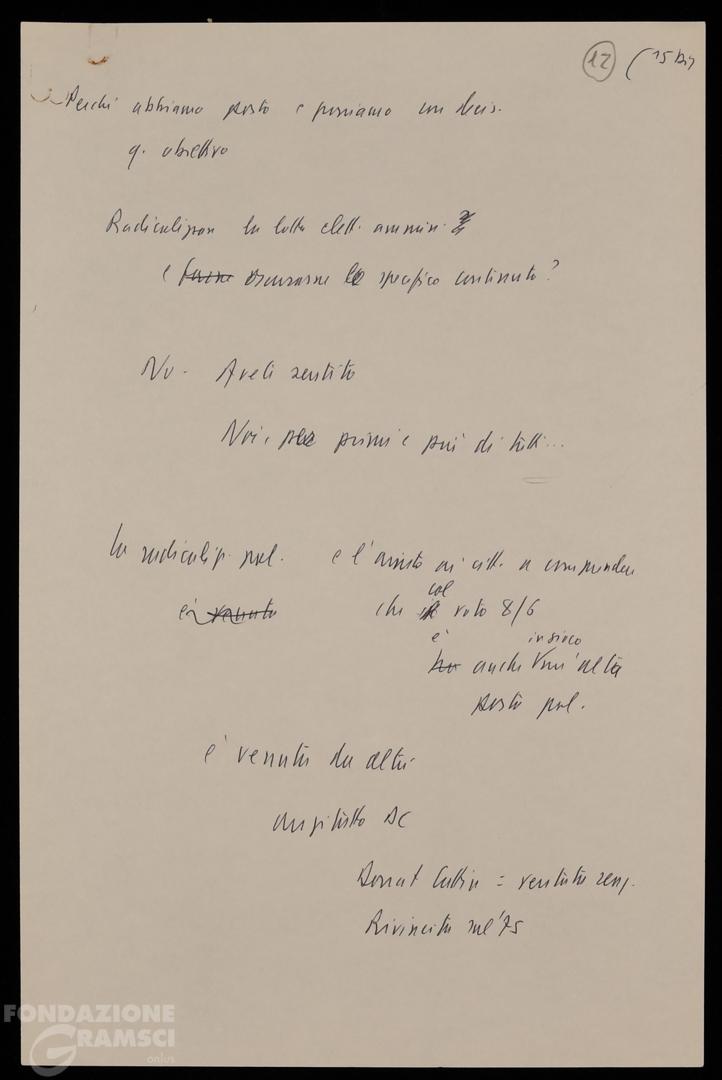 12 (15 bis
Perché abbiamo posto e poniamo con decis.
q. obiettivo
Radicalizzare la lotta elett. ammin.
e oscurarne lo specifico contenuto?
No. Avete sentito
Noi, primi e più di tutti...
La radicalizz. pol. e l'invito ai citt. a comprendere
è venuta che col voto 8/6
è anche in gioco un'alta
posta pol.
è venuta da altri
anzitutto DC
Donat Cattin = ventata
Rivincita sul '75
FONDAZIONE
GRAMSCI
onlus